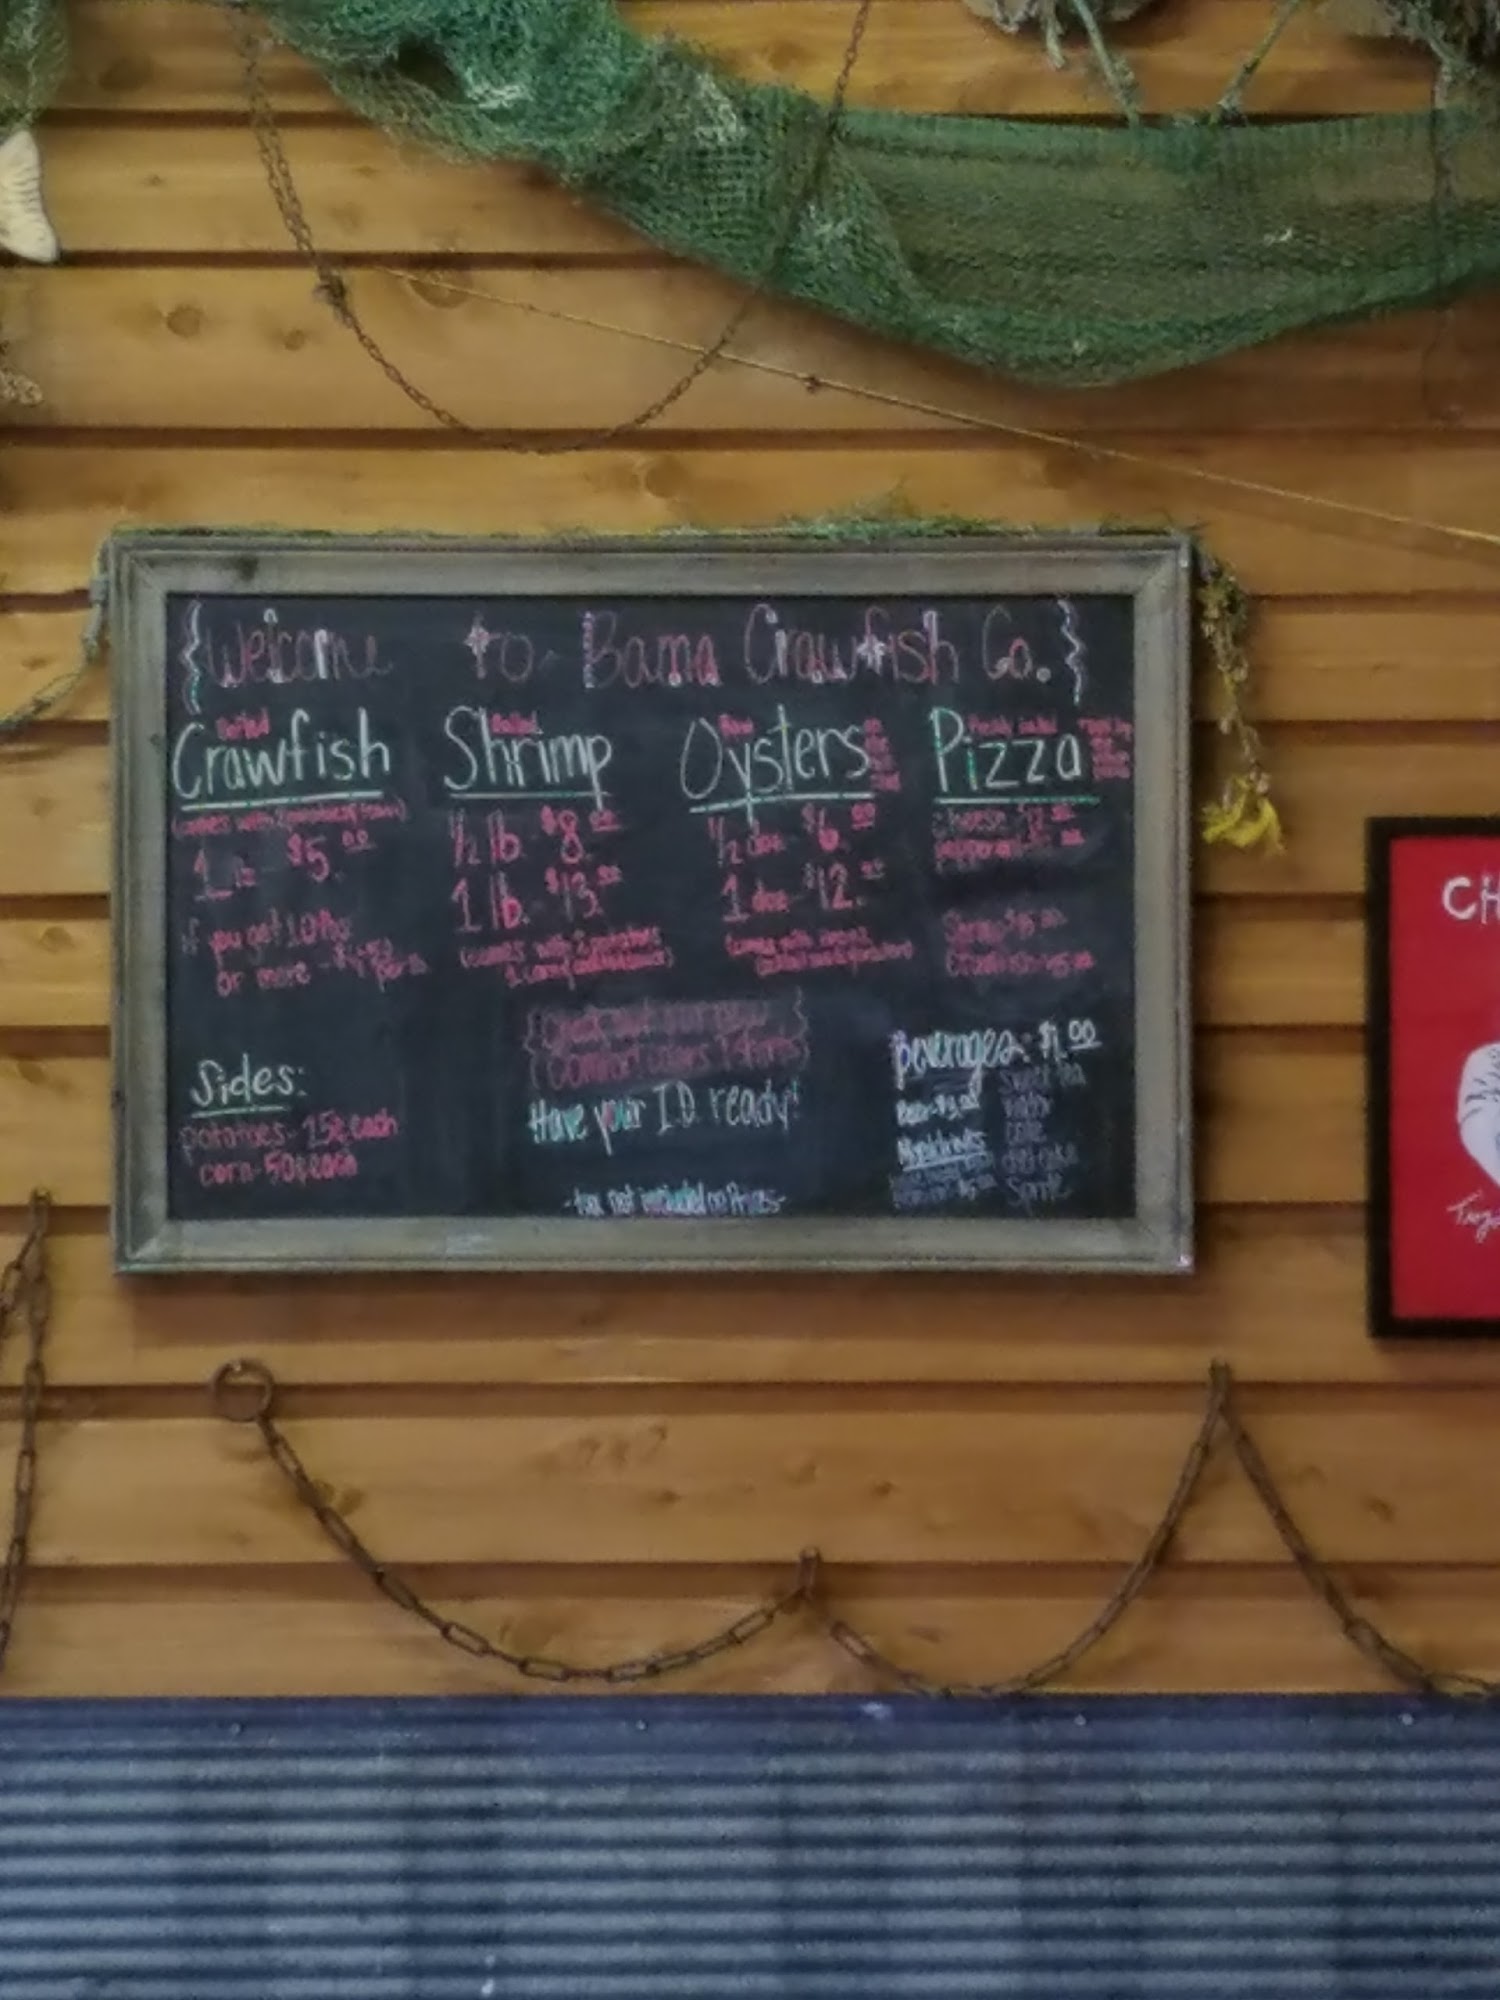 {Welcome to Bama Crawfish Co.}
Boiled
Crawfish
(comes with 2 potatoes/1 corn)
1 lb $5.00
if you get 10 lbs
or more - $4.50 per lb
Sides:
potatoes - 25¢ each
corn - 50¢ each
Boiled
Shrimp
1/2 lb. $8.00
1 lb. - $13.00
(comes with 2 potatoes
1 corn
Raw
Oysters
1/2 doz $6.00
1 doz - $12.00
(comes with
Pizza
cheese
pepperoni
Shrimp $15.00
Crawfish
{Check out our new
Comfort Colors T-Shirts}
Have your I.D. ready!
-tax not included on Prices-
Beverages: $1.00
Beer - $3.00
Mixed Drinks
sweet tea
water
coke
diet coke
Sprite
CH